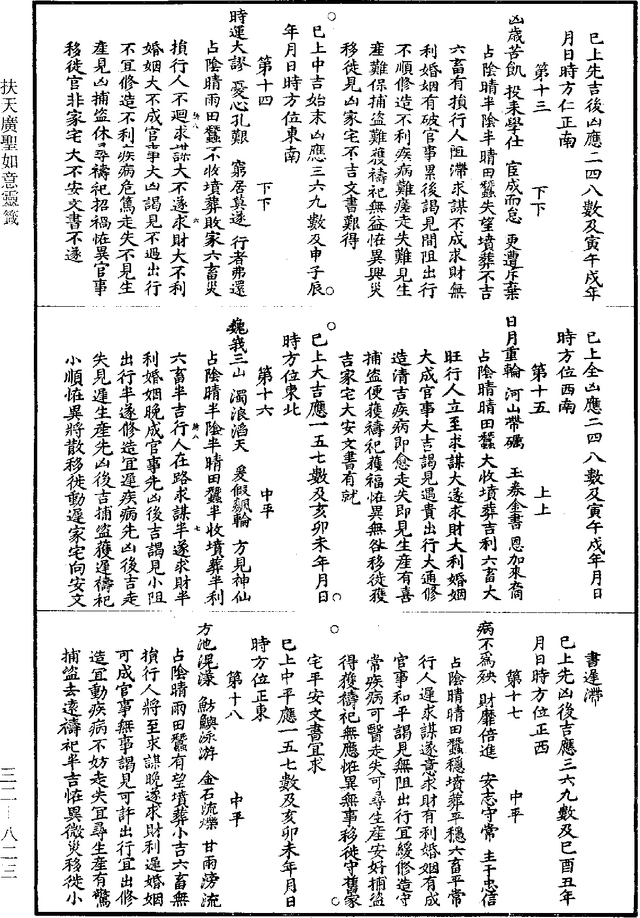 已上先吉後凶應二四八數及寅午戌年
月日時方仁正南
第十三　下下
凶歲苦飢　投耒學仕　宦成而怠　更遭斥棄
占陰晴半陰半晴田蠶失望墳葬不吉
六畜有損行人阻滯求謀不成求財無
利婚姻有破官事累後謁見間阻出行
不順修造不利疾病難瘥走失難見生
產難保捕盜難獲禱祀無益怪異興災
移徙見凶家宅不吉文書難得
已上中吉始末凶應三六九數及申子辰
年月日時方位東南
第十四　下下
時運大謬　憂心孔艱　窮居莫遂　行者弗還
占陰晴雨田蠶不收墳葬敗家六畜災
損行人不迴求謀大不遂求財大不利
婚姻大不成官事大凶謁見不遇出行
不宜修造不利疾病危篤走失不見生
產見凶捕盜休尋禱祀招禍怪異官事
移徙官非家宅大不安文書不遂
已上全凶應二四八數及寅午戌年月日
時方位西南
第十五　上上
日月重輪　河山帶礪　玉券金書　恩加來裔
占陰晴晴田蠶大收墳葬吉利六畜大
旺行人立至求謀大遂求財大利婚姻
大成官事大吉謁見遇貴出行大通修
造清吉疾病即愈走失即見生產有喜
捕盜便獲禱祀獲福怪異無咎移徙獲
吉家宅大安文書有就
已上大吉應一五七數及亥卯未年月日
時方位東北
第十六　中平
巍峩三山　濁浪滔天　爰假飆輪　方見神仙
占陰晴半陰半晴田蠶半收墳葬半利
六畜半吉行人在路求謀半遂求財半
利婚姻晚成官事先凶後吉謁見小阻
出行半遂修造宜遲疾病先凶後吉走
失見遲生產先凶後吉捕盜獲遲禱祀
小順怪異將散移徙動遲家宅向安文
書遲滯
已上先凶後吉應三六九數及巳酉丑年
月日時方位正西
第十七　中平
病不為殃　財靡倍進　安志守常　主于忠信
占陰晴晴田蠶穩墳葬平穩六畜平常
行人遲求謀遂意求財有利婚姻有成
官事和平謁見無阻出行宜緩修造守
常疾病可醫走失可尋生產安好捕盜
得獲禱祀無應怪異無事移徙守舊家
宅平安文書宜求
已上中平應一五七數及亥卯未年月日
時方位正東
第十八　中平
方池滉漾　魴鱮泳游　金石流爍　甘雨滂流
占陰晴雨田蠶有望墳葬小吉六畜無
損行人將至求謀晚遂求財利遲婚姻
可成官事無事謁見可許出行宜出修
造宜動疾病不妨走失宜尋生產有驚
捕盜去遠禱祀半吉怪異微災移徙小
扶天廣聖如意靈籤
三二—八二三